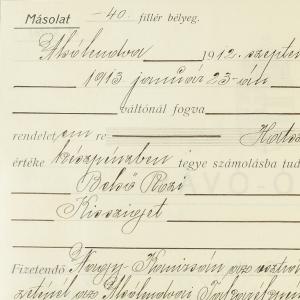 Másolat —40.— fillér bélyeg.
Alsólendva 1912. szeptem
1913 január 23-án
váltónál fogva
rendelet em re Hatsz
értéke készpénzben tegye számolásba tud
Belső Rozi
Kissziget
Fizetendő Nagy-Kanizsán az osztrá
zeténél az Alsólendvai Takarékpén